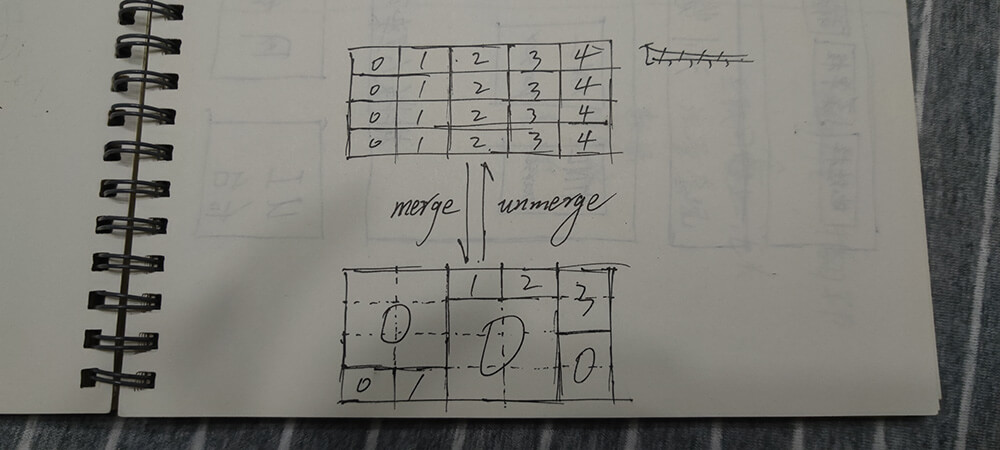 0 1 2 3 4
0 1 2 3 4
0 1 2 3 4
0 1 2 3 4
merge unmerge
1 2 3
0 0 0
0 1